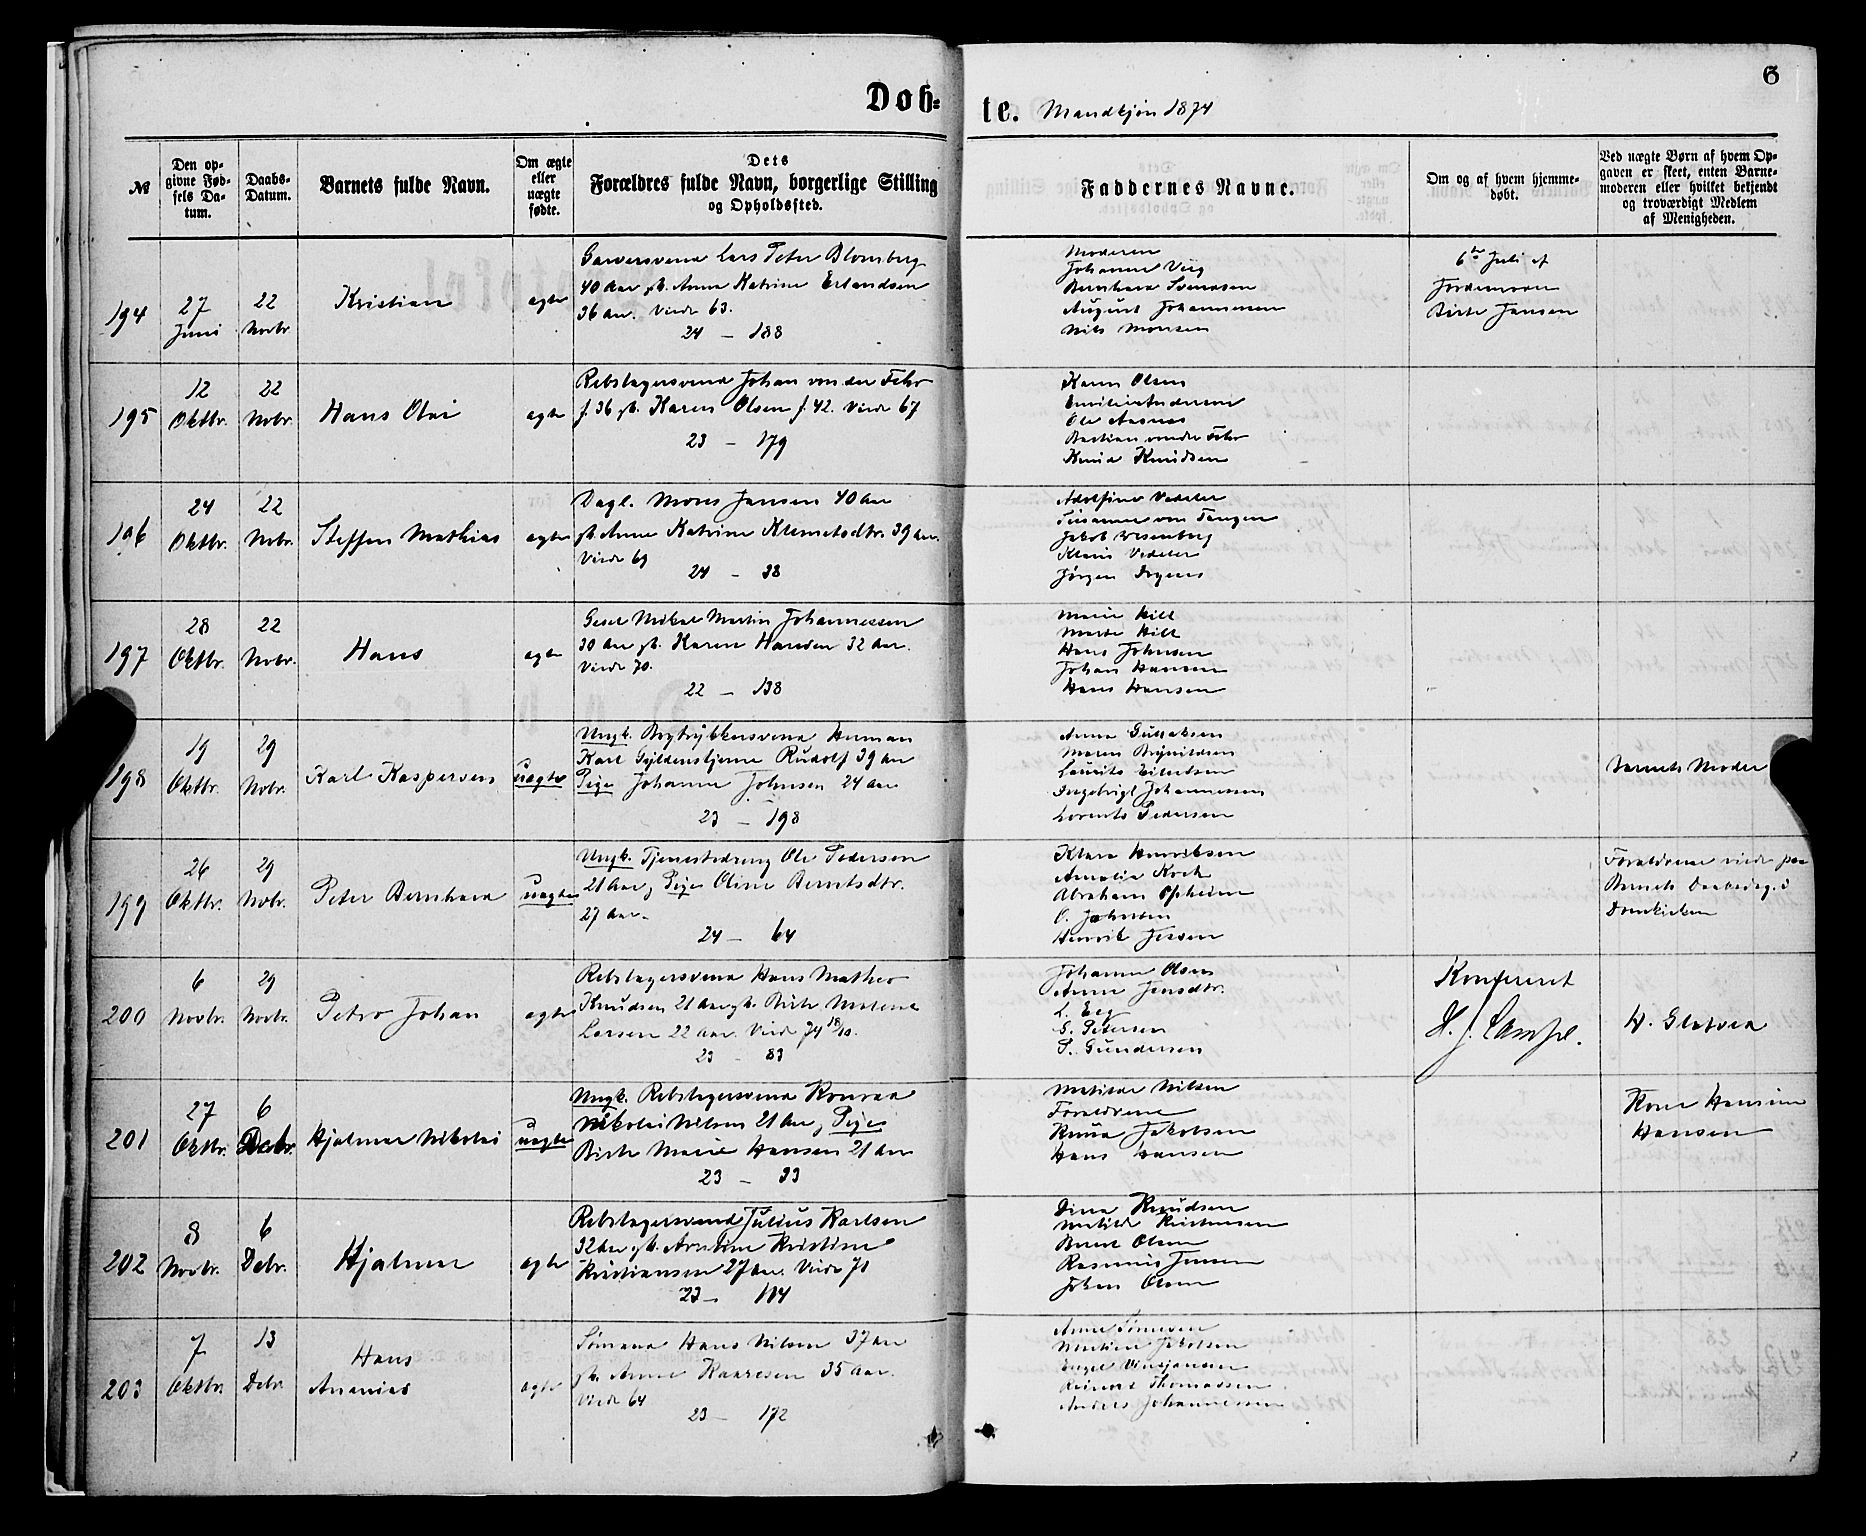 Døb=
te. Mandkjøn 1874
6
№
Den op-
givne Fød-
sels Da-
tum.
Daabs-
Datum.
Barnets fulde Navn.
Om ægte
eller
uægte
fødte.
Dets
Forældres fulde Navn, borgerlige Stilling
og Opholdssted.
Faddernes Navne.
Om og af hvem hjemme-
døbt.
Ved uægte Børn af hvem Op-
gaven er skeet, enten Barne-
moderen eller hvilket bekjendt
og troværdigt Medlem
af Menigheden.
194
27
Juni
22
Novbr
Kristian
ægte
Garversvend Lars Peter Blomberg
40 Aar gb. Anne Katrine Erlandsen
36 Aar. Viede 63.
24 — 188
Moderen
Johanne Viig
Bernhard Svendsen
August Johannessen
Nils Monsen
6te Juli af
Jordemoder
Birte Jansen
195
12
Oktbr.
22
Novbr.
Hans Olai
ægte
Rebslagersvend Johan von der Fehr
f. 36 gb. Karen Olsen f. 42. Viede 67
23 — 179
Karen Olsen
Emilie Andersen
Ole Aasnes
Bastian vonder Fehr
Knud Knudsen
196
24
Oktbr.
22
Novbr.
Steffen Mathias
ægte
Dagl. Mons Jansen 40 Aar
gb. Anne Katrine Klemetsdtr. 39 Aar.
Viede 69
24 — 38
Adolfine Vedeler
Susanne von Tangen
Jakob Wesenberg
Klaus Vedeler
Jørgen
197
28
Oktbr.
22
Novbr.
Hans
ægte
Gesel Mikal Martin Johannessen
30 Aar gb. Karen Hansden 32 Aar.
Viede 70.
22 — 138
Marie Hill
Marte Hill
Hans Johnsen
Johan Hansen
Hans Hansen
198
19
Oktbr.
29
Novbr.
Karl Kaspersens
uægte
Ungk. Bogtrykkersvend Herman
Karl Gyldenstjerne Rudolf 39 Aar
Pige Johanne Johnsen 24 Aar
23 — 198
Anna Gullaksen
Maren Brynildsen
Laurits Eilertsen
Ingebrigt Johannessen
Lorents Pedersen
Barnets Moder
199
26
Oktbr.
29
Novbr.
Peter Bernhard
uægte
Ungk. Tjenestedreng Ole Pedersen
21 Aar, Pige Oline Berntsdtr.
27 Aar.
24 — 64
Klara Henriksen
Amalia Koch
Abraham Opheim
O. Johnsen
Henrik Jessen
Forældrene viede paa
Barnets Daabsdag i
Domkirken
200
6
Novbr.
29
Novbr.
Petro Johan
ægte
Rebslagersvend Hans Matheo
Knudsen 21 Aar gb. Birte Malene
Larsen 22 Aar. Viede 74 18/10.
23 — 83
Johanne Olsen
Anne Jensdtr.
L. Eeg
S. Petersen
P. Gundersen
Konfereret
H. J. Lampe.
H. Glatved
201
27
Oktbr.
6
Debr.
Hjalmar Nikolai
uægte
Ungk. Rebslagersvend Konrad
Nikolai Nilsen 21 Aar, Pige
Birte Marie Hansen 21 Aar
23 — 33
Matilde Nilsen
Forældrene
Knud Jakobsen
Hans Hansen
Kone Hansine
Hansen
202
8
Novbr.
6
Debr.
Hjalmar
ægte
Rebslagersvend Julius Karlsen
32 Aar gb. Arntine Kristine
Kristiansen 27 Aar. Viede 71
23 — 114
Dina Knudsen
Matilde Kristensen
Bernt Olsen
Rasmus Jensen
Johan Olsen
203
7
Oktbr.
13
Debr.
Hans
Ananias
ægte
Sømand Hans Nilsen 37 Aar
gb. Anne Kaaresen 35 Aar.
Viede 64
23 — 172
Anne Sønnesen
Martine Jakobsen
Engel Vinsjansen
Reinert Thomassen
Anders Johannessen